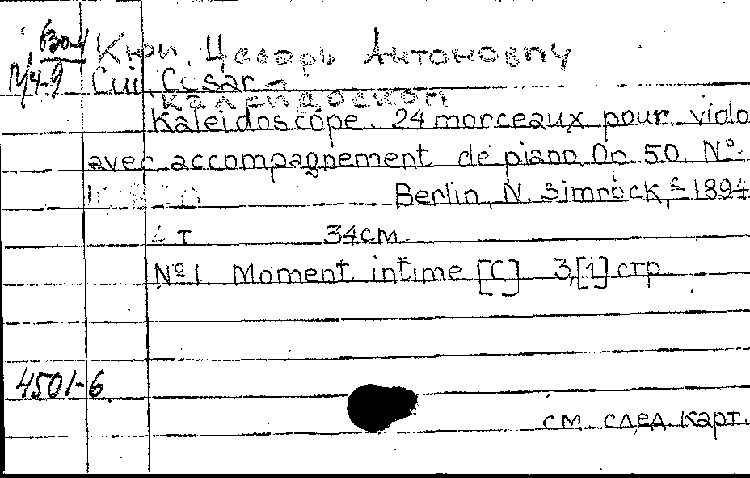 Кюи, Цезарь Антонович
М4-9 Cui Cesar
Калейдоскоп
Kaleidoscope. 24 morceaux pour violo
avec accompagnement de piano Op 50. Nº
Berlin, N. Simrock, c 1894
4 т 34см
Nº1 Moment intime [C] 3,[1] стр
4501-6
см. след. карт.